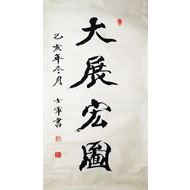 大展宏圖
乙亥年冬月
士軍書